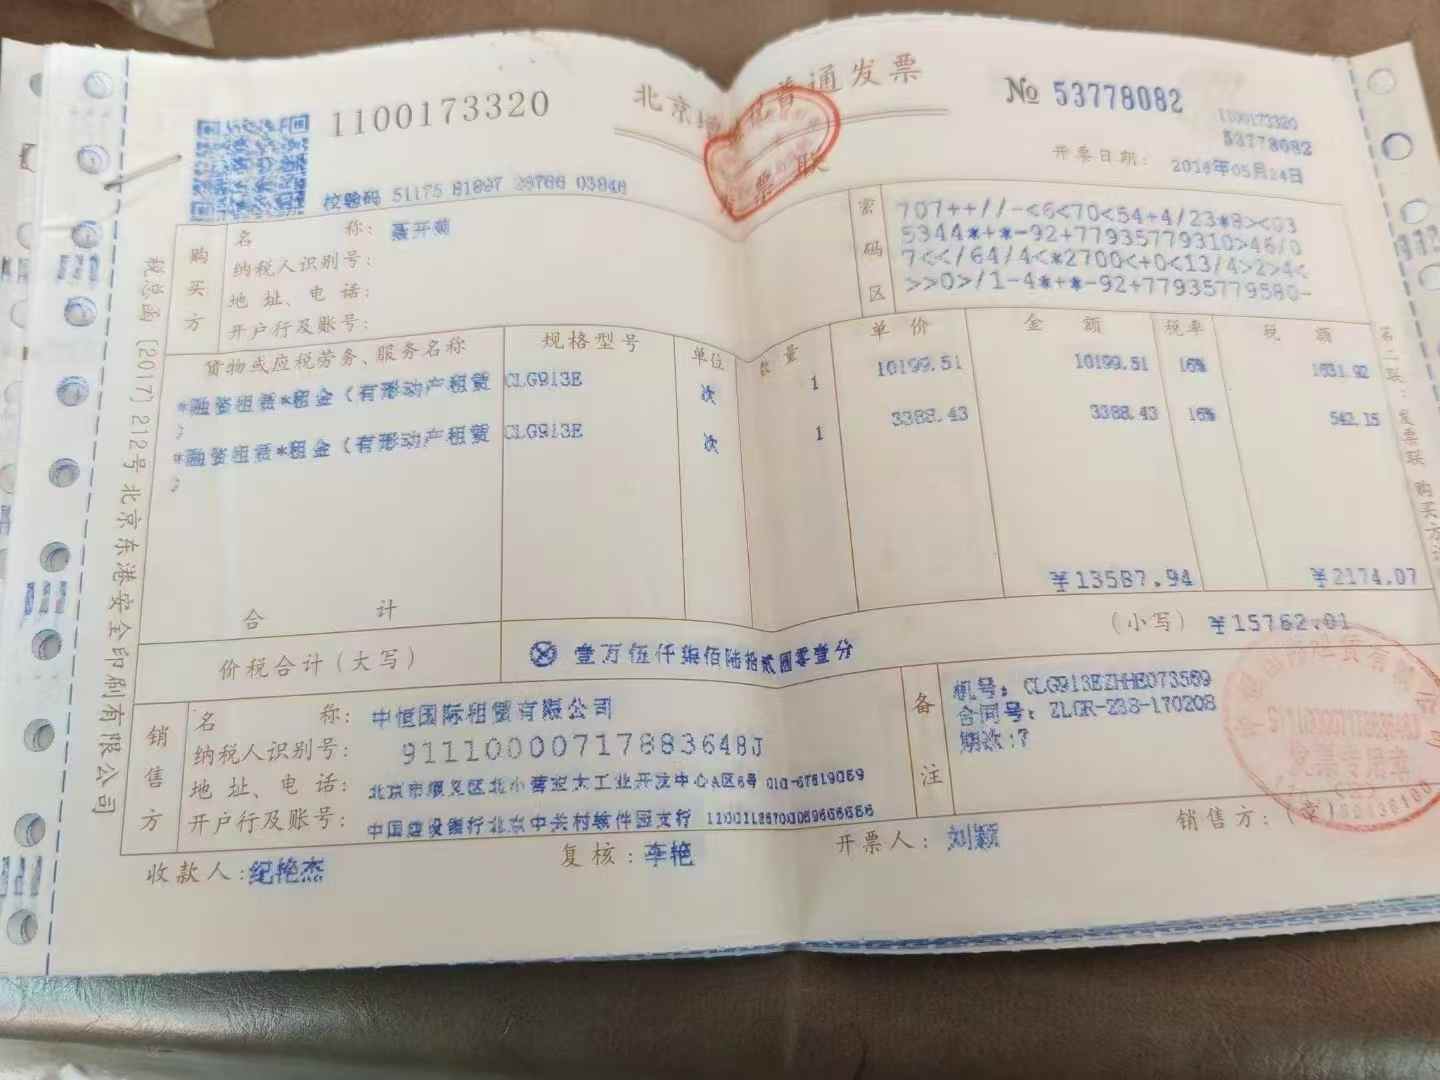 1100173320
北京增值税普通发票
发票联
№ 53778082
1100173320
53778082
校验码 51175 81897 28766 03848
开票日期: 2018年05月24日
购买方
名 称: 聂开菊
纳税人识别号:
地 址、电 话:
开户行及账号:
密码区
707++//-<6<70<54+4/23*8><03
5344*+*-92+77935779310>46/0
7<</64/4<*2700<+0<13/4>2>4<
>>0>/1-4*+*-92+77935779580-
货物或应税劳务、服务名称 规格型号 单位 数量 单价 金额 税率 税额
*融资租赁*租金(有形动产租赁) CLG913E 次 1 10199.51 10199.51 16% 1631.92
*融资租赁*租金(有形动产租赁) CLG913E 次 1 3388.43 3388.43 16% 542.15
合 计 ¥13587.94 ¥2174.07
价税合计(大写) ⊗ 壹万伍仟柒佰陆拾贰圆零壹分 (小写) ¥15762.01
销售方
名 称: 中恒国际租赁有限公司
纳税人识别号: 91110000717883648J
地 址、电 话: 北京市顺义区北小营宏大工业开发中心A区6号 010-67819069
开户行及账号: 中国建设银行北京中关村软件园支行
备注
机号: CLG913EZHHE073569
合同号: ZLGR-23S-170208
期次:7
收款人:纪艳杰
复核:李艳
开票人:刘颖
销售方:(章)
税总函〔2017〕212号北京东港安全印刷有限公司
第二联:发票联 购买方
发票专用章